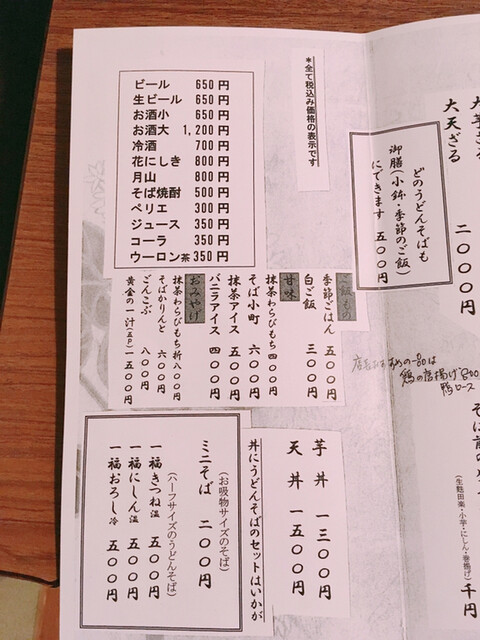 ビール 650円
生ビール 650円
お酒小 650円
お酒大 1,200円
冷酒 700円
花にしき 800円
月山 800円
そば焼酎 500円
ペリエ 300円
ジュース 350円
コーラ 350円
ウーロン茶 350円
*全て税込み価格の表示です
大天ざる 二〇〇〇円
どのうどんそばも
御膳(小鉢・季節のご飯)
にできます 五〇〇円
ご飯もの
季節ごはん 五〇〇円
白ご飯 三〇〇円
甘味
抹茶わらびもち 四〇〇円
そば小町 六〇〇円
抹茶アイス 五〇〇円
バニラアイス 四〇〇円
おみやげ
抹茶わらびもち 折八〇〇円
そばかりんと 六〇〇円
ごんこぶ 八〇〇円
黄金の一汁(五P) 一五〇〇円
鶏の唐揚げ
鴨ロース
芋丼 一三〇〇円
天丼 一五〇〇円
丼にうどんそばのセットはいかが
(お吸物サイズのそば)
ミニそば 二〇〇円
(ハーフサイズのうどんそば)
一福きつね温 五〇〇円
一福にしん温 五〇〇円
一福おろし冷 五〇〇円
(生麩田楽・小芋・にしん・巻揚げ)
千円